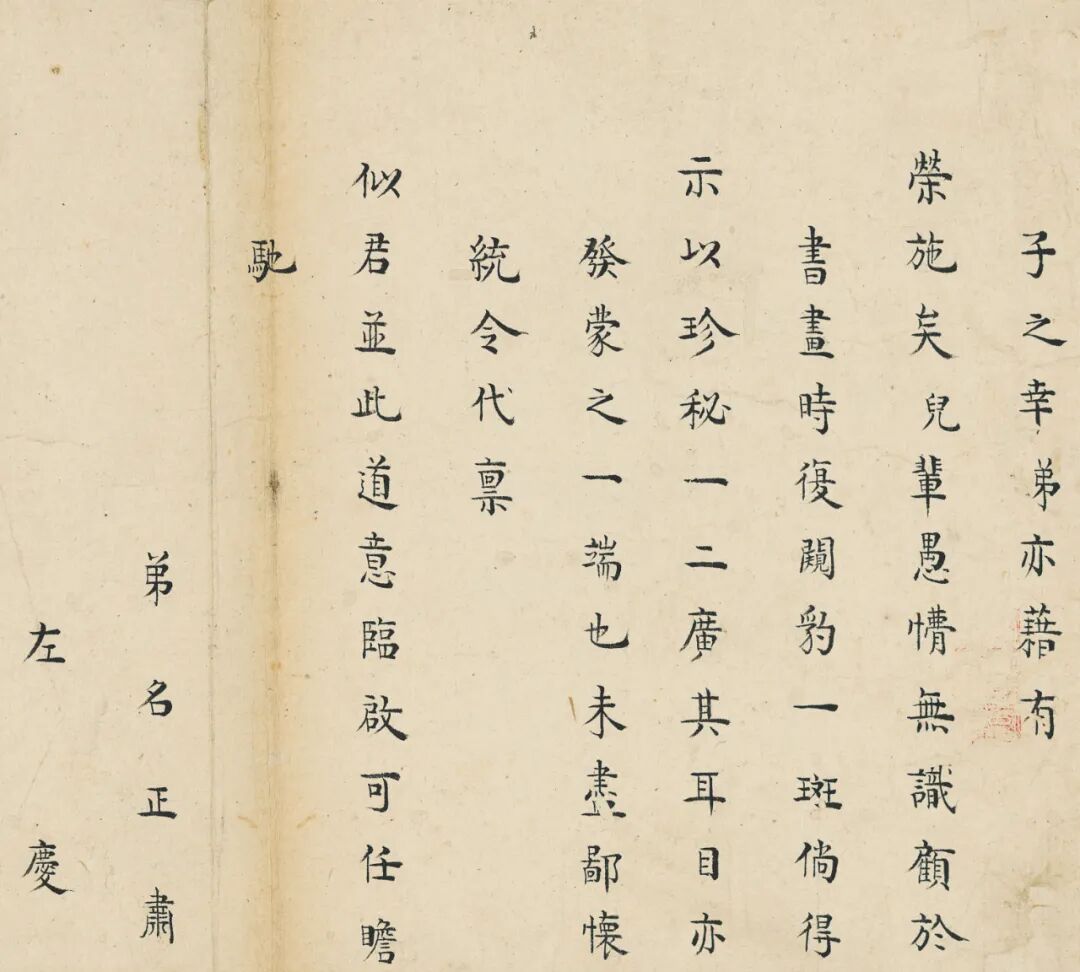 子之幸弟亦藉有
榮施矣兒輩愚懵無識顧於
書畫時復闚豹一斑倘得
示以珍秘一二廣其耳目亦
發蒙之一端也未盡鄙懷
統令代稟
似君並此道意臨啟可任瞻
馳
弟名正肅
左慶